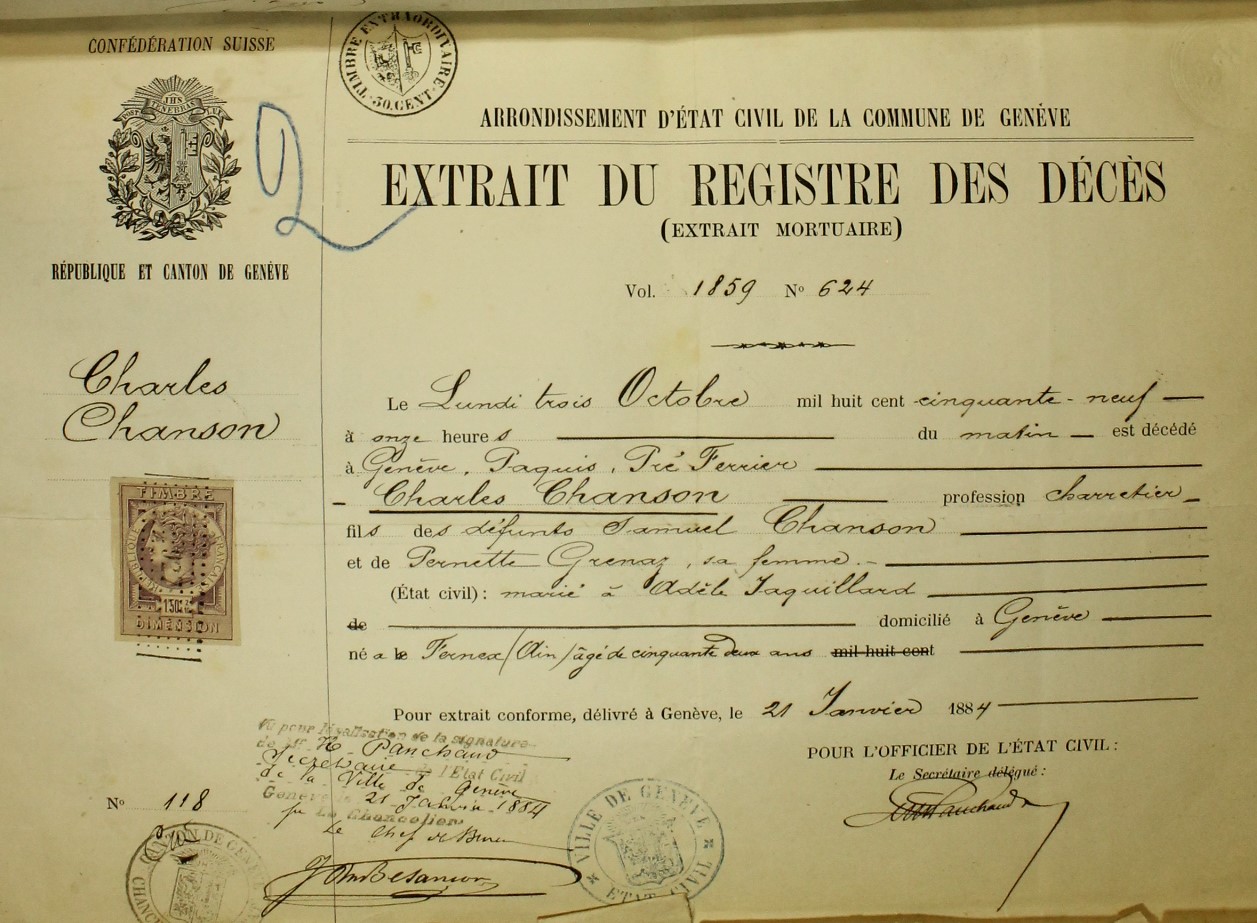 CONFÉDÉRATION SUISSE
JHS
POST TENEBRAS LUX
RÉPUBLIQUE ET CANTON DE GENÈVE
Charles
Chanson
TIMBRE
RÉPUBLIQUE FRANÇAISE
DIMENSION
Nº 118
CANTON DE GENÈVE
TIMBRE EXTRAORDINAIRE
30. CENT.
2
ARRONDISSEMENT D'ÉTAT CIVIL DE LA COMMUNE DE GENÈVE
EXTRAIT DU REGISTRE DES DÉCÈS
(EXTRAIT MORTUAIRE)
Vol. 1859 Nº 624
Le Lundi trois Octobre mil huit cent cinquante-neuf
à onze heures du matin est décédé
à Genève, Paquis, Pré Ferrier
Charles Chanson profession charretier
fils des défunts Samuel Chanson
et de Pernette Grenaz, sa femme.
(État civil) : marié à Adèle Jaquillard
de domicilié à Genève
né a le Fernex (Ain) âgé de cinquante deux ans mil huit cent
Pour extrait conforme, délivré à Genève, le 21 Janvier 1884
POUR L'OFFICIER DE L'ÉTAT CIVIL :
Le Secrétaire délégué :
Vu pour légalisation de la signature
de Mr Panchaud
Secrétaire de l'Etat Civil
de la Ville de Genève
Genève 21 Janvier 1884
Le Chancelier
Le Chef de Bureau
VILLE DE GENÈVE
ETAT CIVIL